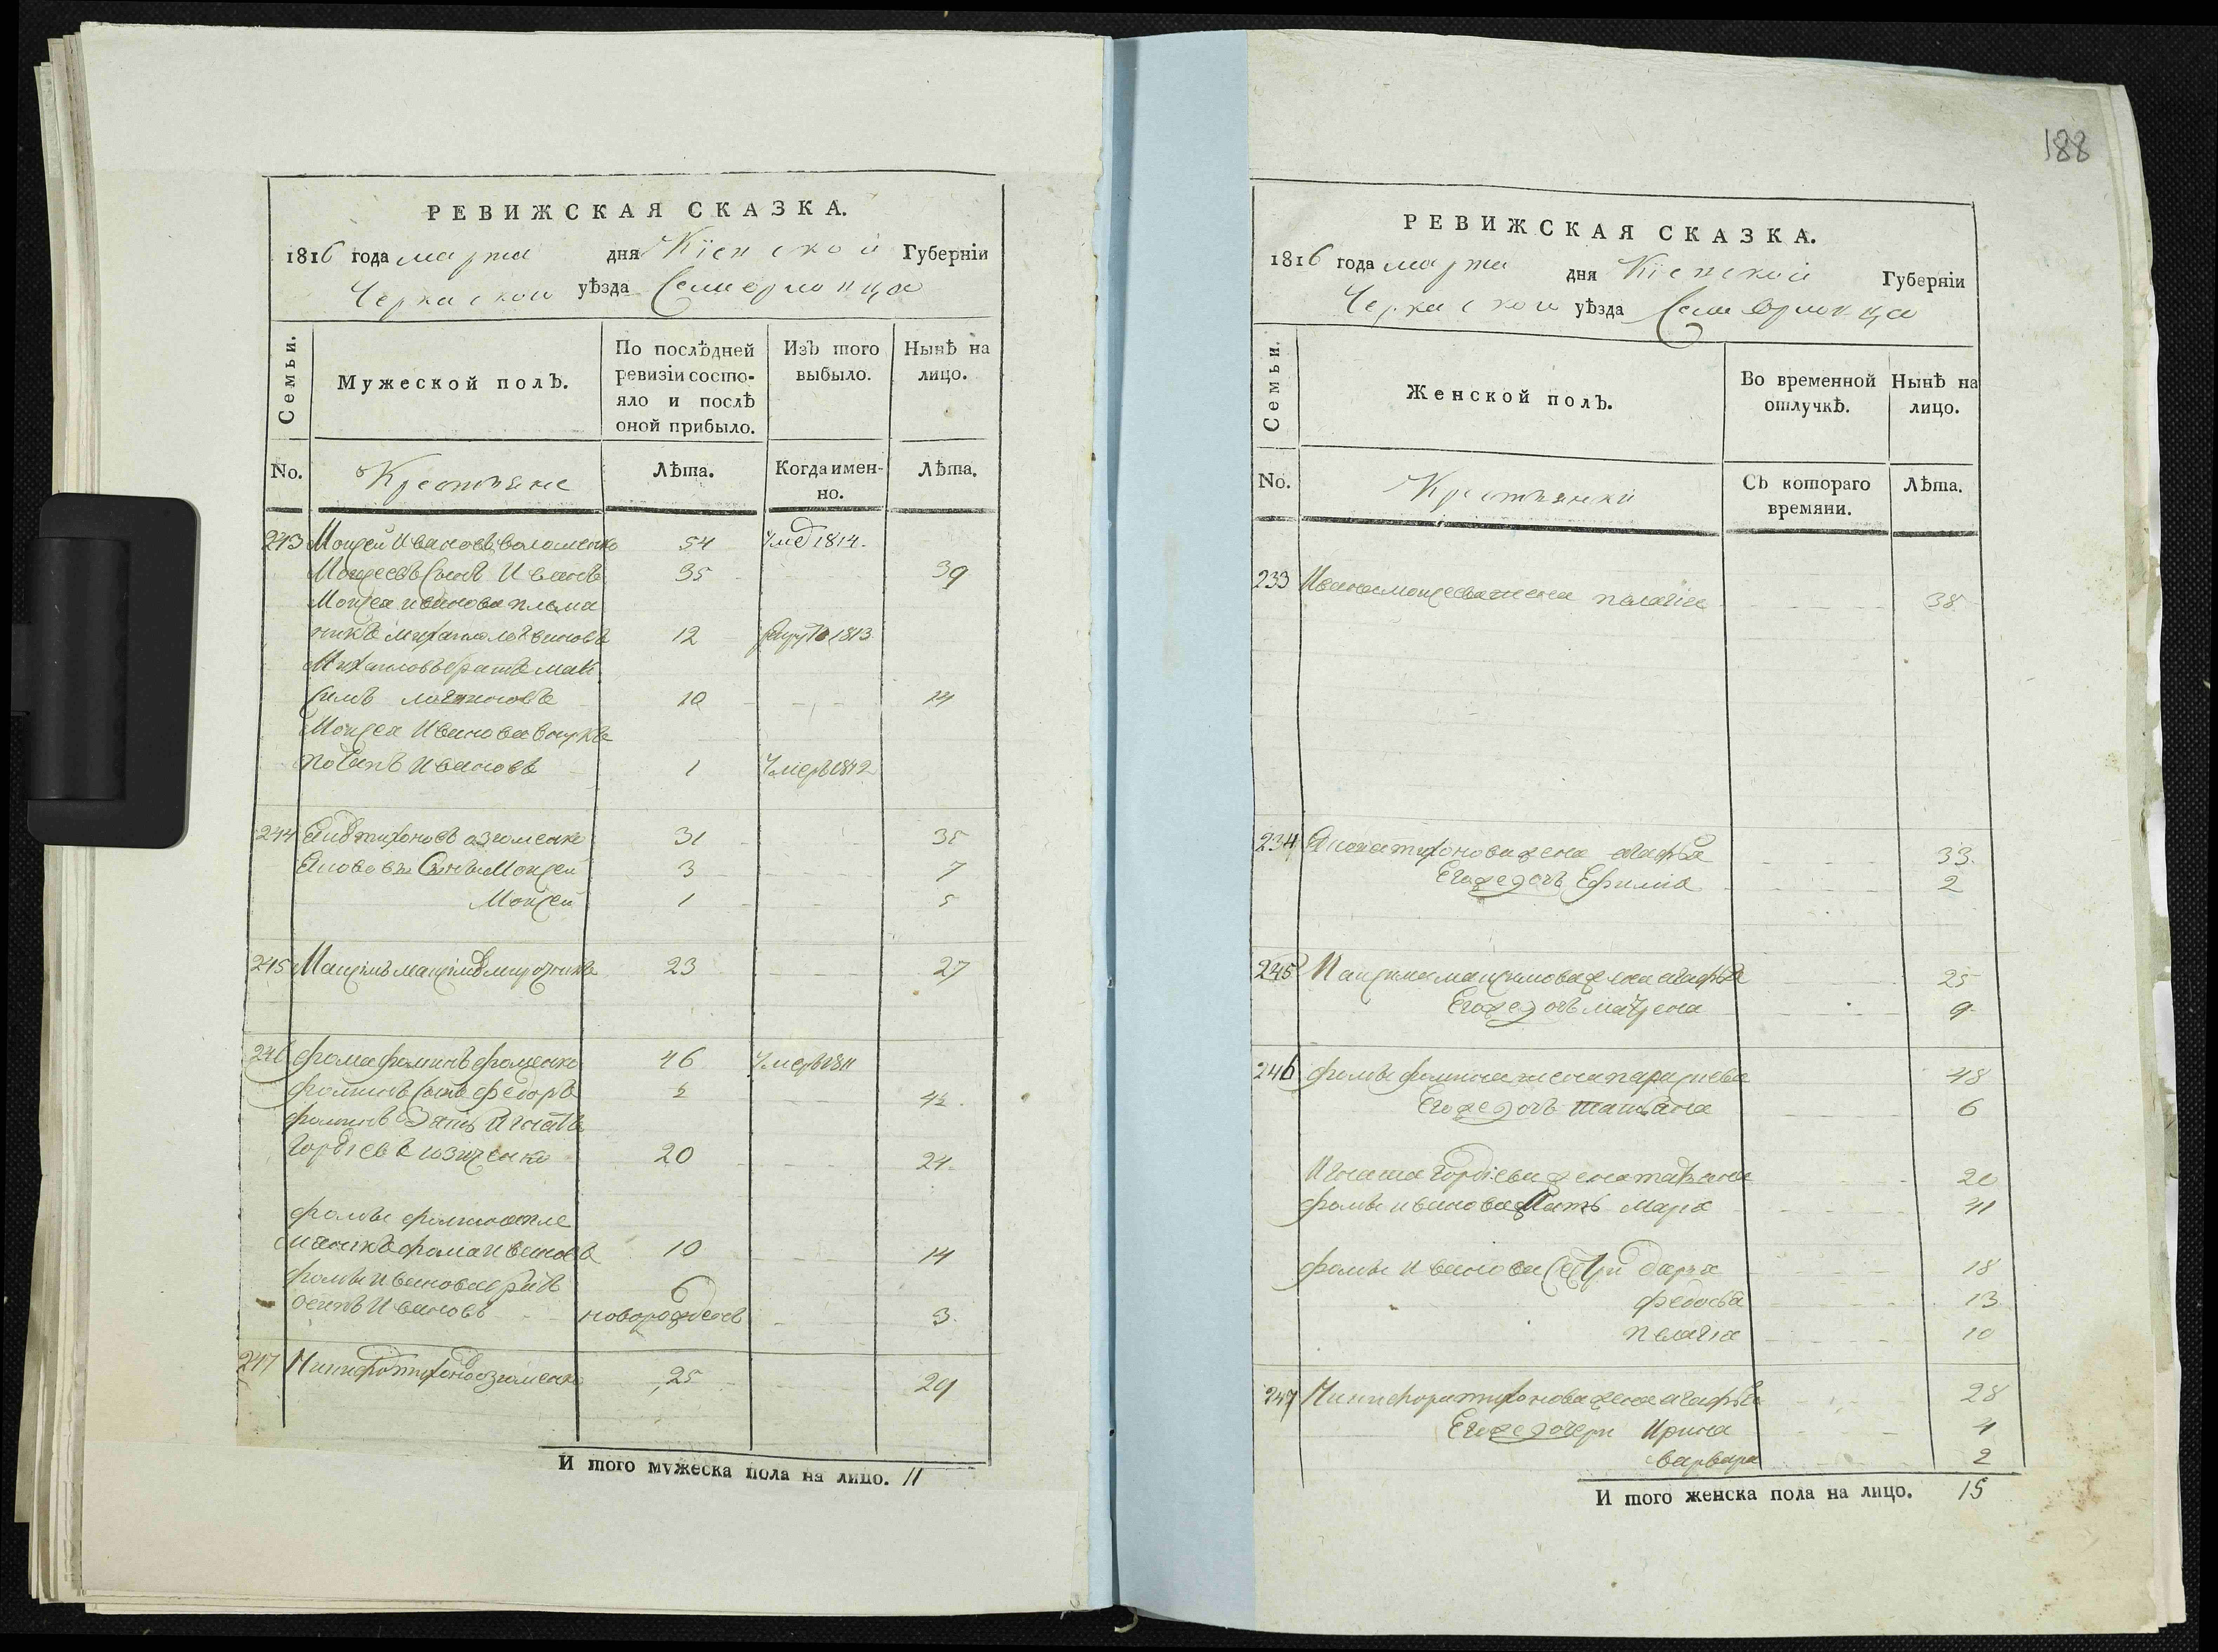 188
РЕВИЖСКАЯ СКАЗКА.
1816 года марта дня Кіевской Губерніи
Черкаской уѣзда
Семьи.
Мужеской полЪ.
По послѣдней ревизіи состо-
яло и послѣ
оной прибыло.
ИзЪ того
выбыло.
Нынѣ на
лицо.
No.
Крестьяне
Лѣта.
Когда имен-
но.
Лѣта.
243 Моисей Ивановъ 54 1814.
Моисеевъ сынъ Иванъ 35 39
Моисея Иванова племя
никъ Михаило 12 1813
Михайловъ братъ Мак
симъ 10 14
Моисея Иванова внукъ
Ивановъ 1 Умеръ 1812
244 31 35
сынъ Моисей 3 7
Моисей 1 5
245 23 27
246 Фома Фоминъ Фоменко 46 Умеръ 1811
Фоминъ сынъ Федоръ
Фоминъ зять Игнатъ
Гордіевъ 20 24
Фомы Фомина пле
мяникъ Фома Ивановъ 10 14
Фомы Иванова братъ
Осипъ Ивановъ новорожденъ 3
247 25 29
И того мужеска пола на лицо. 11
РЕВИЖСКАЯ СКАЗКА.
1816 года марта дня Кіевской Губерніи
Черкаской уѣзда
Семьи.
Женской полЪ.
Во временной
отлучкѣ.
Нынѣ на
лицо.
No.
Крестьянки
СЪ котораго
времяни.
Лѣта.
233 Ивана Моисеева жена Пелагія 38
234 жена Агафья 33
Егожедочь Ефимія 2
245 Максима Максимова жена Агафья 25
Егожедочь Матрена 9
246 Фомы Фомина жена Параскева 48
Егожедочь Татьяна 6
Игната Гордіева жена Татьяна 20
Фомы Иванова мать Марья 41
Фомы Иванова сестры Дарья 18
Федосья 13
Пелагія 10
247 Никифора Тихонова жена Агафья 28
Егожедочери Ирина 4
Варвара 2
И того женска пола на лицо. 15